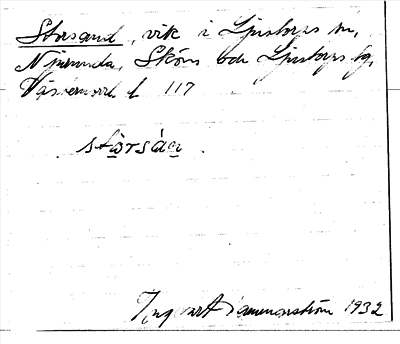 Storsand, vik i Ljustorps sn,
Njurunda, Sköns och Ljustorps tg,
Västernorrl. l. 117
stòrsán.
Ingvart Dammonström 1932